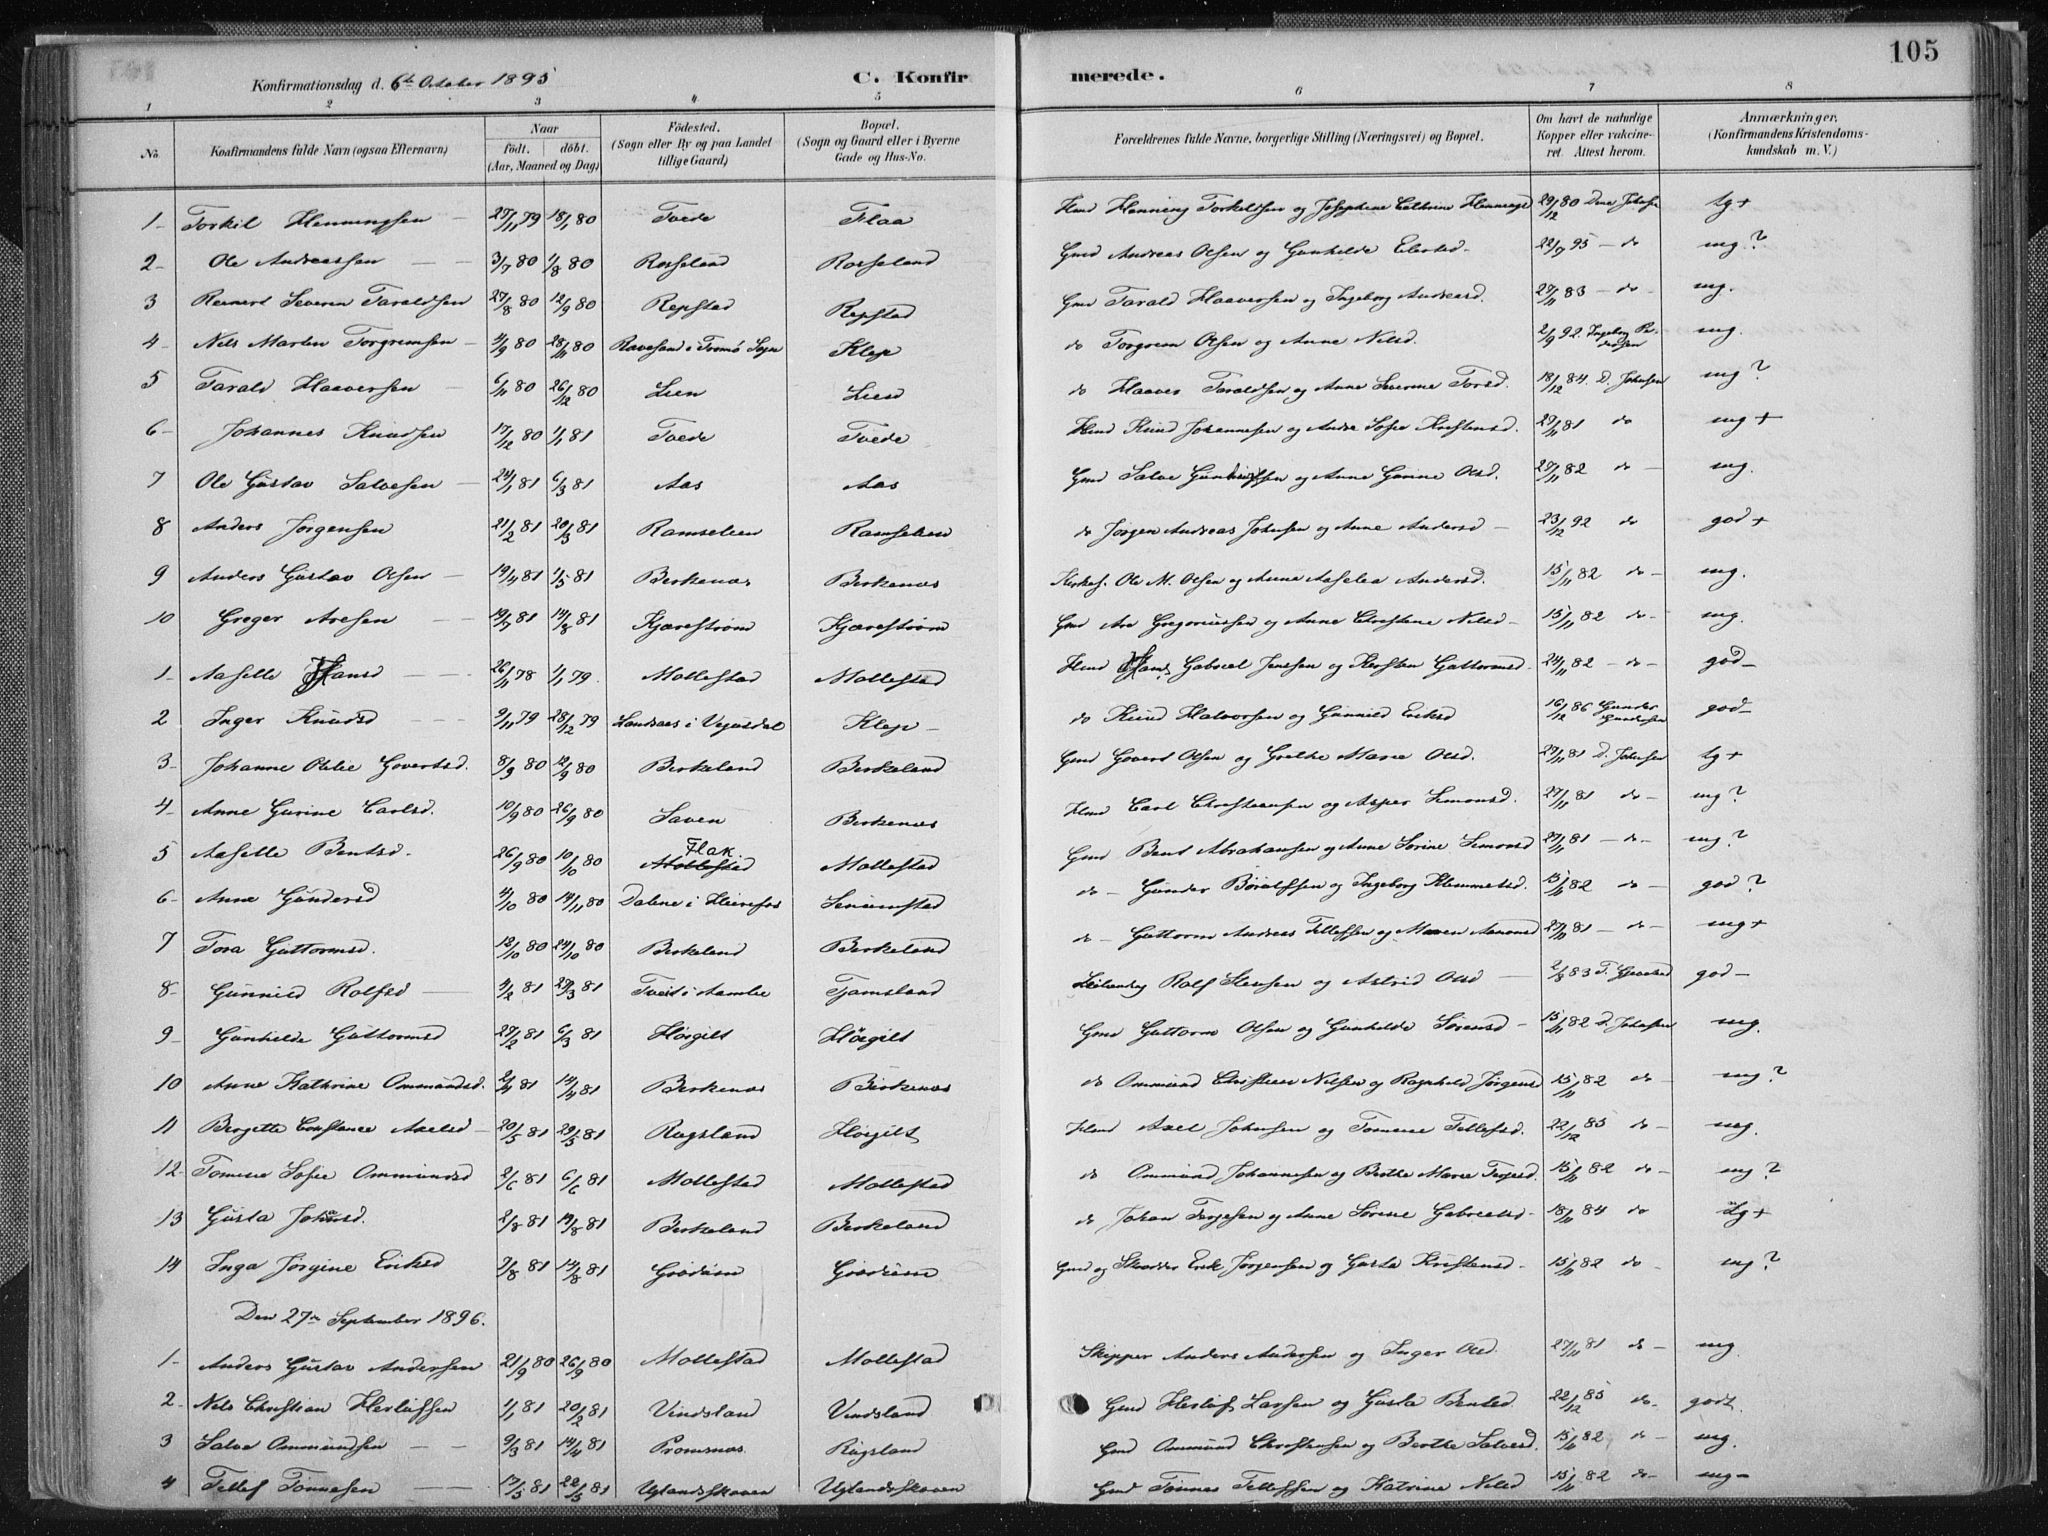 105
Konfirmationsdag d. 6te October 1895
C. Konfirmerede.
1 2 3 4 5 6 7 8
No Konfirmandens fulde Navn (ogsaa Efternavn) Naar født. døbt. (Aar, Maaned og Dag) Fødested. (Sogn eller By og paa Landet tillige Gaard) Bopæl. (Sogn og Gaard eller i Byerne Gade og Hus-No. Forældrenes fulde Navne, borgerlige Stilling (Næringsvei) og Bopæl. Om havt de naturlige Kopper eller vakcineret. Attest herom. Anmærkninger. (Konfirmandens Kristendomskundskab m. V.)
1- Torkil Henningsen 27/11 79 18/1 80 Tvede Flaa Hmd Henning Torkeldsen og Josephine Cathrine 29/12 80 tg+
2- Ole Andreassen 3/7 80 1/8 80 Rosseland Rosseland Gmd Andreas Olsen og Gunhilde 22/7 95 - do mg?
3 Reinert Severin Taraldsen 27/8 80 12/9 80 Repstad Repstad Gmd Tarald Haaversen og Ingeborg Andreasd. 27/11 83 - do - mg.
4- Nils Martin Torgrimsen 4/9 80 28/11 80 Ravesand i Tromø Sogn Klep do Torgrim Olsen og Anne Nilsd. 2/9 92. Ingeborg Pedersen mg.
5 Tarald Haaversen 6/11 80 26/12 80 Lien Lien do Haaver Taraldsen og Anne Severine Torsd. 18/12 84. D. Johnsen mg?
6- Johannes Knudsen 17/12 80 1/1 81 Tvede Tvede Hmd Knud Johannesen og Andrea Sofie Kristensd. 27/11 81 do mg+
7 Ole Gustav Salvesen 24/1 81 6/3 81 Aas Aas Gmd Salve og Anne Gurine Olsd. 27/11 82 do- mg.
8 Anders Jørgensen 21/2 81 20/3 81 Ramselien Ramselien do Jørgen Andreas Johnsen og Anne Andersd - 23/12 92 do god+
9 Anders Gustav Olsen 19/4 81 1/5 81 Birkenæs Birkenæs Kirkes. Ole M. Olsen og Anne Aaselea Andersd. 15/11 82 do- mg.
10 Greger Aresen 19/7 81 14/8 81 Kjærestrøm Kjærestrøm Gmd Are Gregoriussen og Anne Christine Nilsd - 15/11 82 do- mg.
1- Aaselle Hansd 26/11 78 1/1 79. Mollestad Mollestad Hmd Hans Gabriel Jenssen og Kirsten Guttormsd. 24/11 82 - do - god-
2 Inger Knudsd 9/11 79 28/12 79 i Vegusdal Klep - do Knud Halvorsen og Gunnild Eriksd 16/12 86 Gunder Gundersen god-
3- Johanne Otilie Govertsd. 8/9 80 12/9 80 Birkeland Birkeland Gmd Govert Olsen og Grethe Marie Olsd. 27/11 81 D. Johnsen tg+
4- Anne Gurine Carlsd. 10/9 80 26/9 80 Saven Birkenæs Hmd Carl Christiansen og Asper Simonsd. 27/11 81 do- mg?
5 Aaselle Bentsd. 26/9 80 10/10 80 Flak Mollestad Mollestad Gmd Bent Abrahamsen og Anne Sorine Simonsd 27/11 81 - do- mg?
6- Anne Gundersd 4/10 80 14/11 80 Dalene i Heirefos Senumstad do- Gunder og Ingeborg Klemmetsd. 15/11 82 do- god?
7 Tora Guttormsd. 12/10 80 24/10 80 Birkeland Birkeland do- Guttorm Andreas Tellefsen og Maren Aanonsd 27/11 81 - do- mg+
8- Gunnild Rolfsd 4/2 81 27/3 81 Tveit i Aamlie Tjamsland Rolf og Astrid Olsd 2/8 83 god-
9- Gunhilde Guttormsd 27/2 81 6/3 81 Høigilt Høigilt Gmd Guttorm Olsen og Gunhilde Sørensd - 15/11 82 D. Johnsen mg.
10 Anne Kathrine Ommundsd. 2/4 81 14/4 81 Birkenæs Birkenæs do Ommund Christian Nilsen og Ragnhild Jørgensd 15/11 82 do- mg?
11 Bergitte Constance Axelsd 20/5 81 29/5 81 Rugsland Høigilt Hmd Axel Johnsen og Tomine Tellefsd. 22/12 85 do- mg.
12- Tomine Sofie Ommundsd 2/6 81 6/6 81 Mollestad Mollestad do Ommund Johannesen og Berthe Marie Terjesd. 15/11 82 do- mg?
13 Gusta Johansd. 2/8 81 14/8 81 Birkeland Birkeland do Johan Terjesen og Anne Sørine Gabrielsd - 18/11 84 do tg+
14 Inga Jørgine Eriksd 7/8 81 14/8 81 Grødum Grødum Gmd og Skrædder Erik Jørgensen og Gusta Kristensd - 15/11 82 do- mg?
Den 27de September 1896.
1- Anders Gustav Andersen 21/9 80 26/9 80 Mollestad Mollestad Skipper Anders Andersen og Inger Olsd. 27/11 81 do- mg
2- Nils Christian Herlufsen 1/1 81 20/2 81 Vindsland Vindsland Gmd Herluf Larsen og Gusta Bentsd. 22/12 85 do- godt.
3 Salve Ommundsen 9/3 81 14/4 81 Rugsland Gmd Ommund Christensen og Berthe Salvesd. 15/11 82 do- mg.
4 Tellef Tønnesen 17/5 81 22/5 81 Uglandsskoven Uglandsskoven Gmd Tønnes Tellefsen og Katrine Nilsd 15/11 82 do- mg-